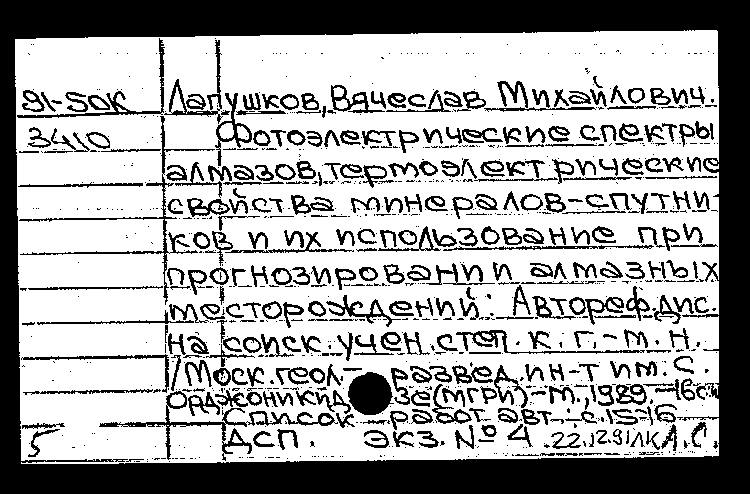 91-50К Лапушков, Вячеслав Михайлович.
3410 Фотоэлектрические спектры
алмазов, термоэлектрические
свойства минералов-спутни-
ков и их использование при
прогнозировании алмазных
месторождений: Автореф.дис.
на соиск.учен.степ.к.г.-м.н.
/Моск.геол- развед.ин-т им.С.
Орджоникидзе(МГРИ)-М.,1989.-16с.
Список работ авт.:с.15-16
5 ДСП. экз.№4 .22.12.91 А.С.